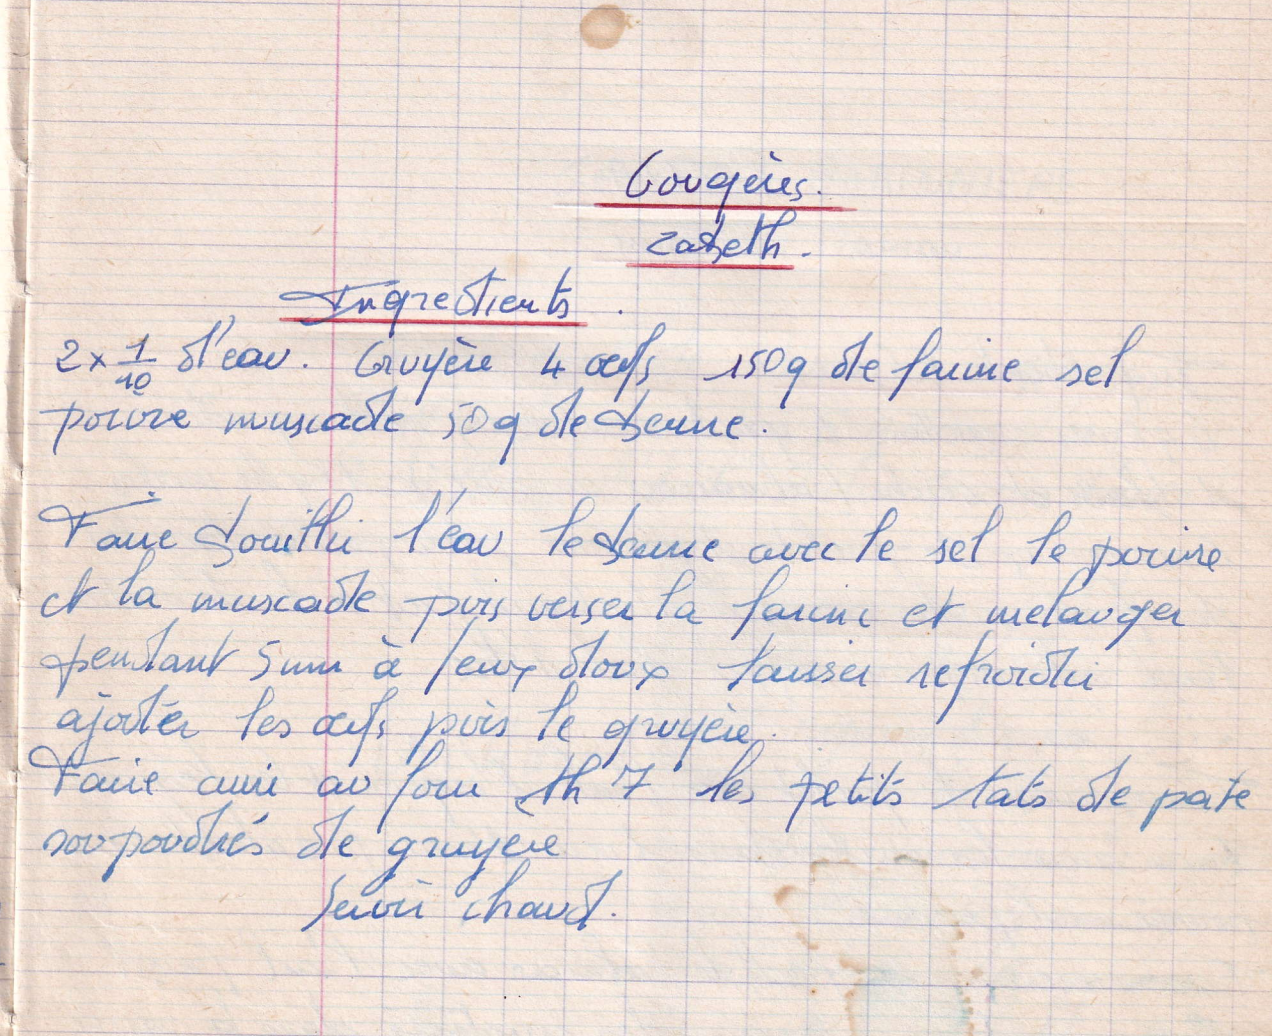 Gougères.
Zabeth.
Ingredients.
2 x 1/10 d'eau. Gruyère 4 œufs 150g de farine sel
poivre muscade 50g de beurre.
Faire bouillir l'eau le beurre avec le sel le poivre
et la muscade puis verser la farine et melanger
pendant 5mn à feux doux laisser refroidir
ajouter les œufs puis le gruyère.
Faire cuire au four th 7 les petits tats de pate
soupoudrés de gruyère
Servir chaud.